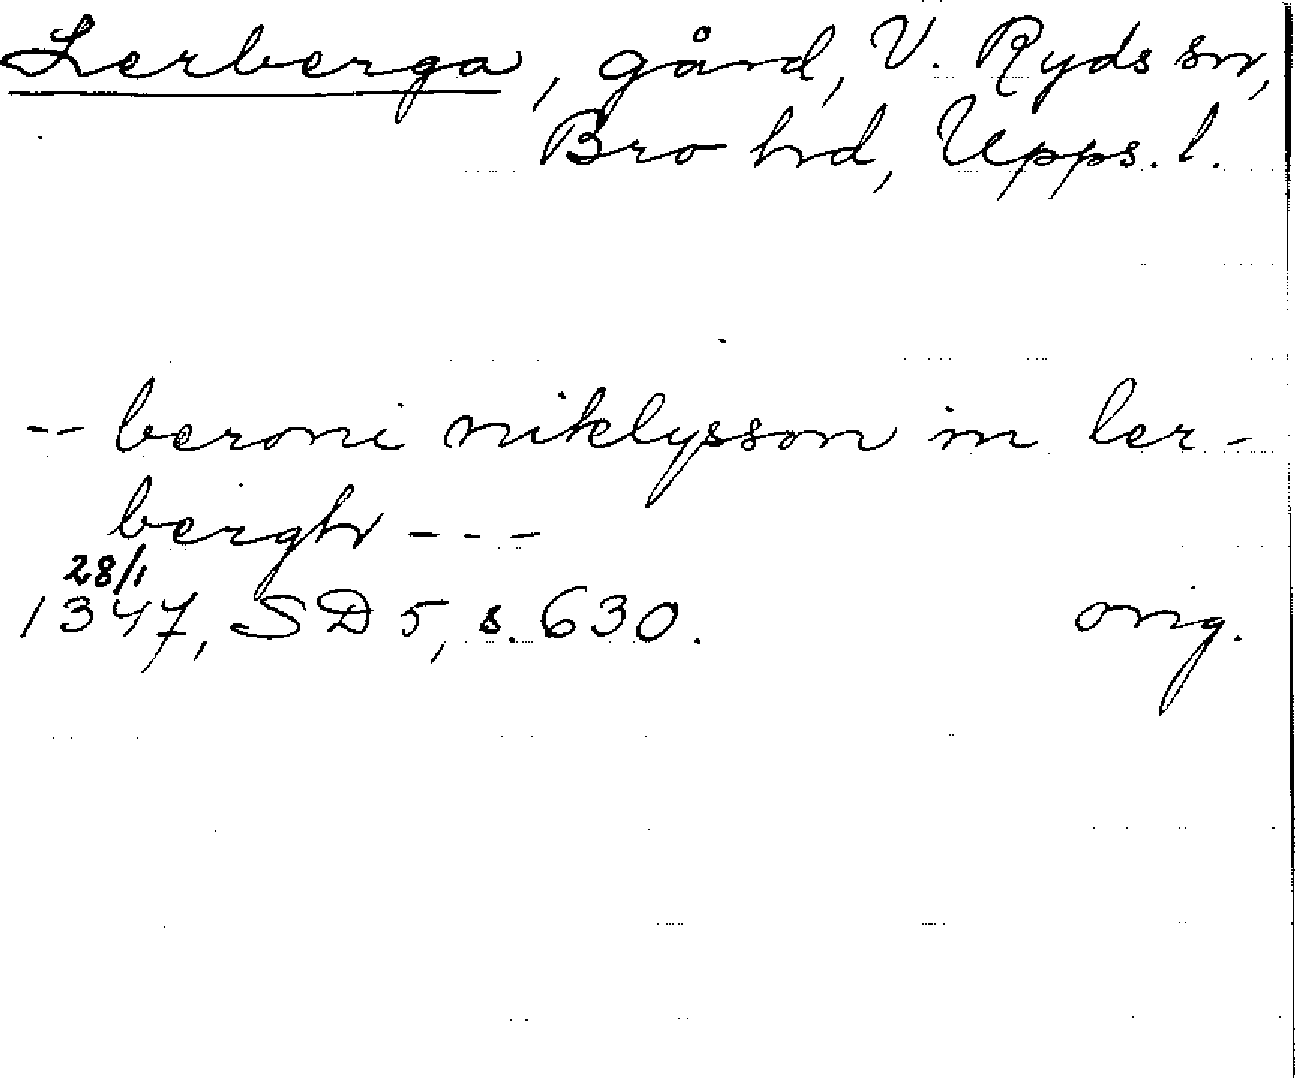 Lerberga, gård, V. Ryds sn,
Bro hd, Upps. l.
-- beroni niklysson in ler-
bergh ---
28/1
1347, SD 5, s. 630. orig.